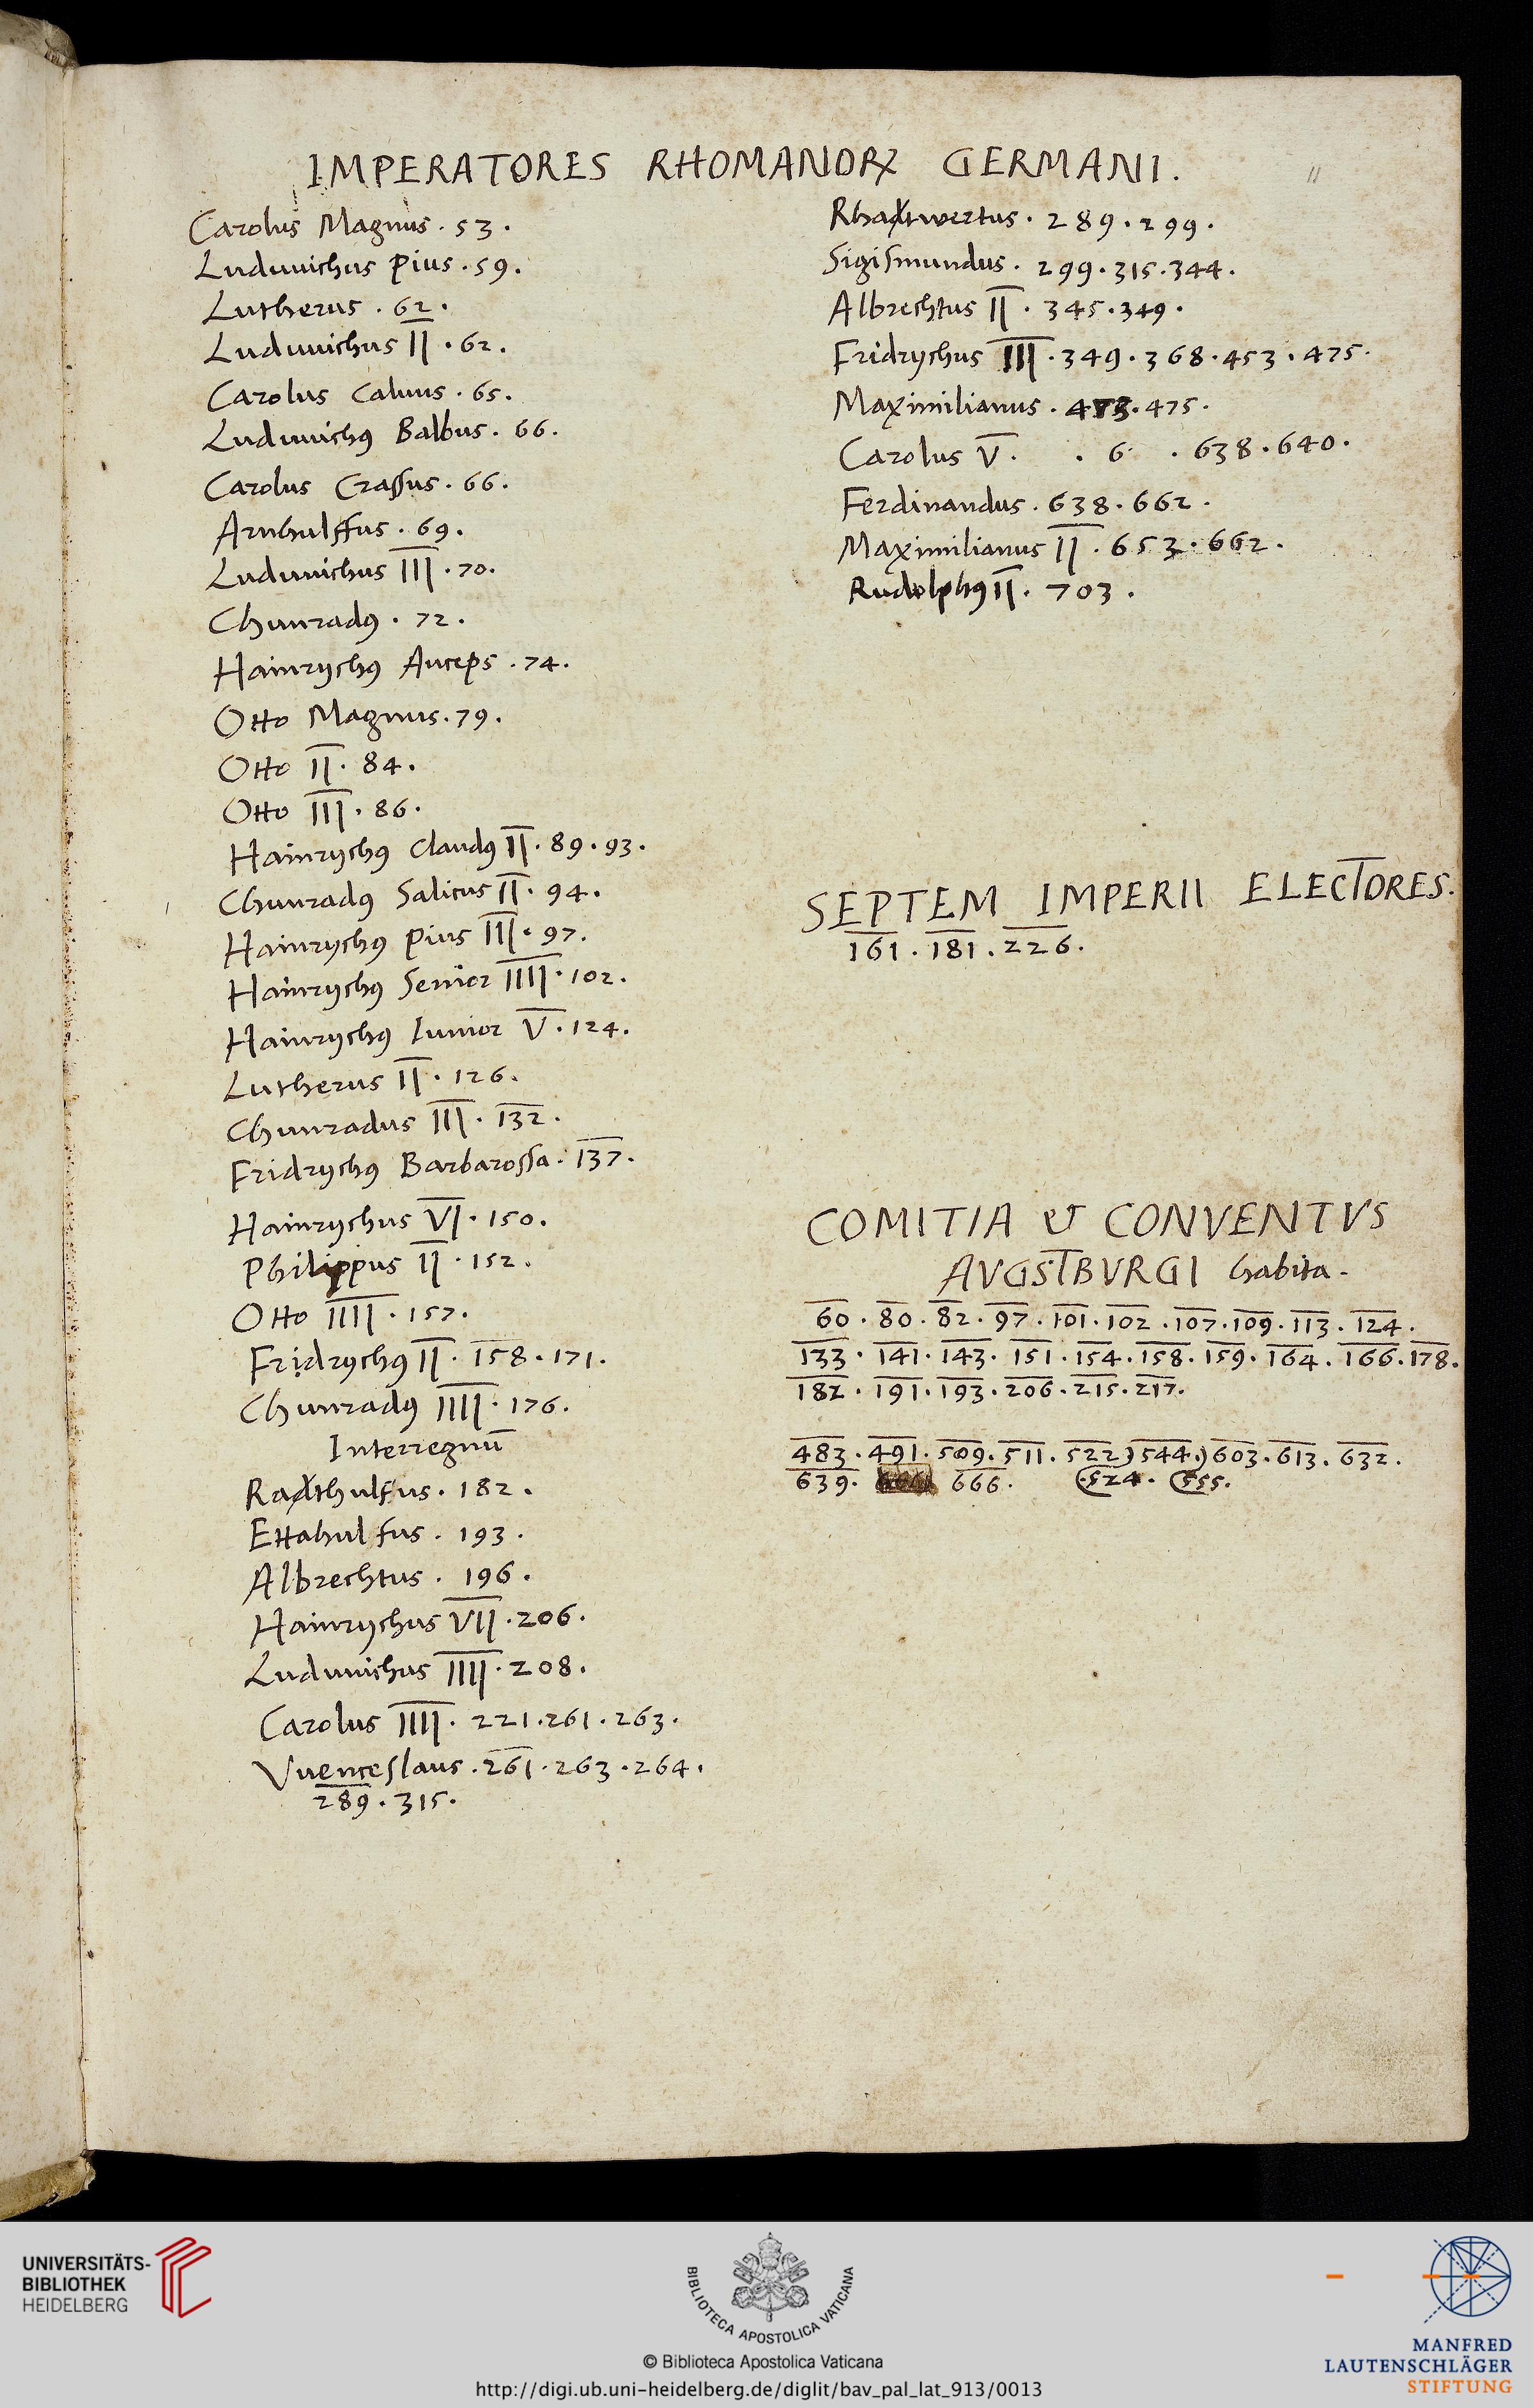 IMPERATORES RHOMANORꝜ GERMANI.
11
Carolus Magnus . 53 .
Luduuichus Pius . 59 .
Lutherus . 62 .
Luduuichus II . 62 .
Carolus Caluus . 65 .
Luduuichꝰ Balbus . 66 .
Carolus Crassus . 66 .
Arnhulffus . 69 .
Luduuichus III . 70 .
Chunradꝰ . 72 .
Hainrychꝰ Auceps . 74 .
Otto Magnus . 79 .
Otto II . 84 .
Otto III . 86 .
Hainrychꝰ Claudꝰ II . 89 . 93 .
Chunradꝰ Salicus II . 94 .
Hainrychꝰ Pius III . 97 .
Hainrychꝰ Senior IIII . 102 .
Hainrychꝰ Iunior V . 124 .
Lutherus II . 126 .
Chunradus III . 132 .
Fridrychꝰ Barbarossa . 137 .
Hainrychus VI . 150 .
Philippus II . 152 .
Otto IIII . 157 .
Fridrychꝰ II . 158 . 171 .
Chunradꝰ IIII . 176 .
Interregnū
Radthulfus . 182 .
Ettahulfus . 193 .
Albrechtus . 196 .
Hainrychus VII . 206 .
Luduuichus IIII . 208 .
Carolus IIII . 221 . 261 . 263 .
Vuenceslaus . 261 . 263 . 264 .
289 . 315 .
Sigismundus . 299 . 315 . 344 .
Albrechtus II . 345 . 349 .
Fridrychus III . 349 . 368 . 453 . 475 .
Maximilianus . 475 .
Carolus V . . 6 . 638 . 640 .
Ferdinandus . 638 . 662 .
Maximilianus II . 653 . 662 .
Rudolphꝰ II . 703 .
SEPTEM IMPERII ELECTORES.
161 . 181 . 226 .
COMITIA & CONVENTVS
AVGSTBVRGI habita .
60 . 80 . 82 . 97 . 101 . 102 . 107 . 109 . 113 . 124 .
133 . 141 . 143 . 151 . 154 . 158 . 159 . 164 . 166 . 178 .
182 . 191 . 193 . 206 . 215 . 217 .
483 . 491 . 509 . 511 . 522 ) 544 . ) 603 . 613 . 632 .
639 . 666 . ( 524 . ( 555 .
UNIVERSITÄTS-
BIBLIOTHEK
HEIDELBERG
BIBLIOTECA APOSTOLICA VATICANA
© Biblioteca Apostolica Vaticana
http://digi.ub.uni-heidelberg.de/diglit/bav_pal_lat_913/0013
MANFRED
LAUTENSCHLÄGER
STIFTUNG